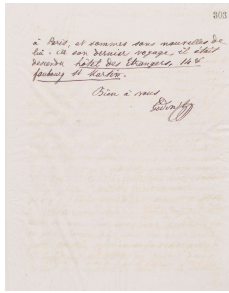 303
à Paris, et sommes sans nouvelles de
lui. À son dernier voyage, il était
descendu hôtel des Etrangers, 148
faubourg St Martin.
Bien à vous